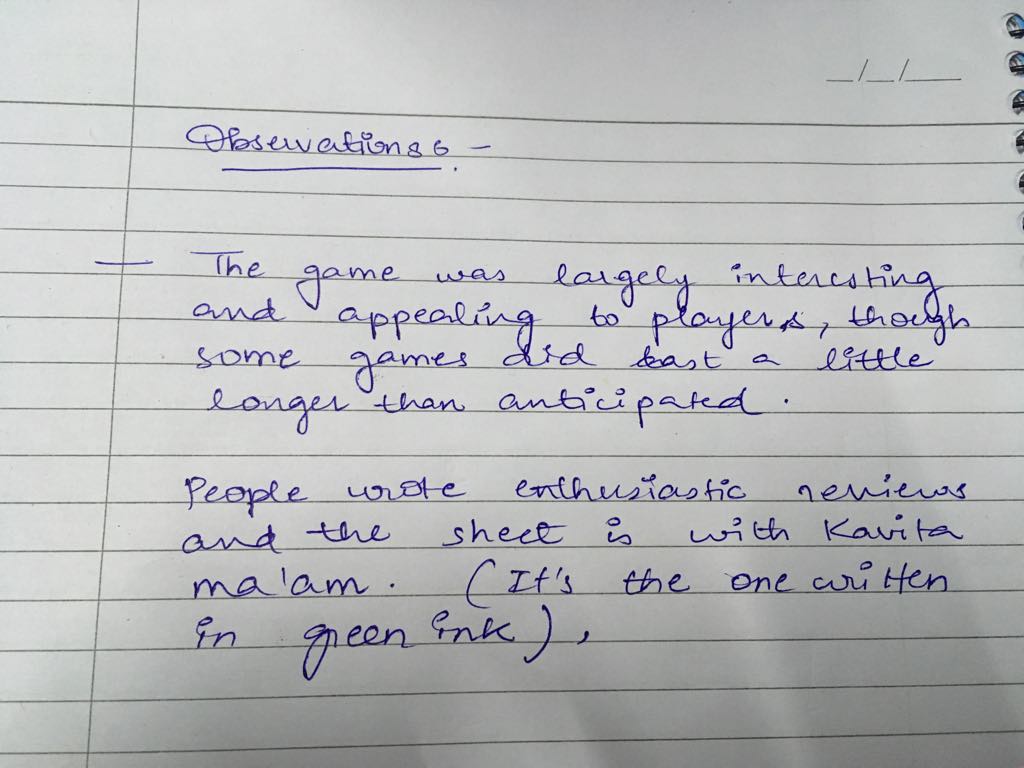 Observations :-
— The game was largely interesting
and appealing to players, though
some games did last a little
longer than anticipated.
People wrote enthusiastic reviews
and the sheet is with Kavita
ma'am. (It's the one written
in green ink),